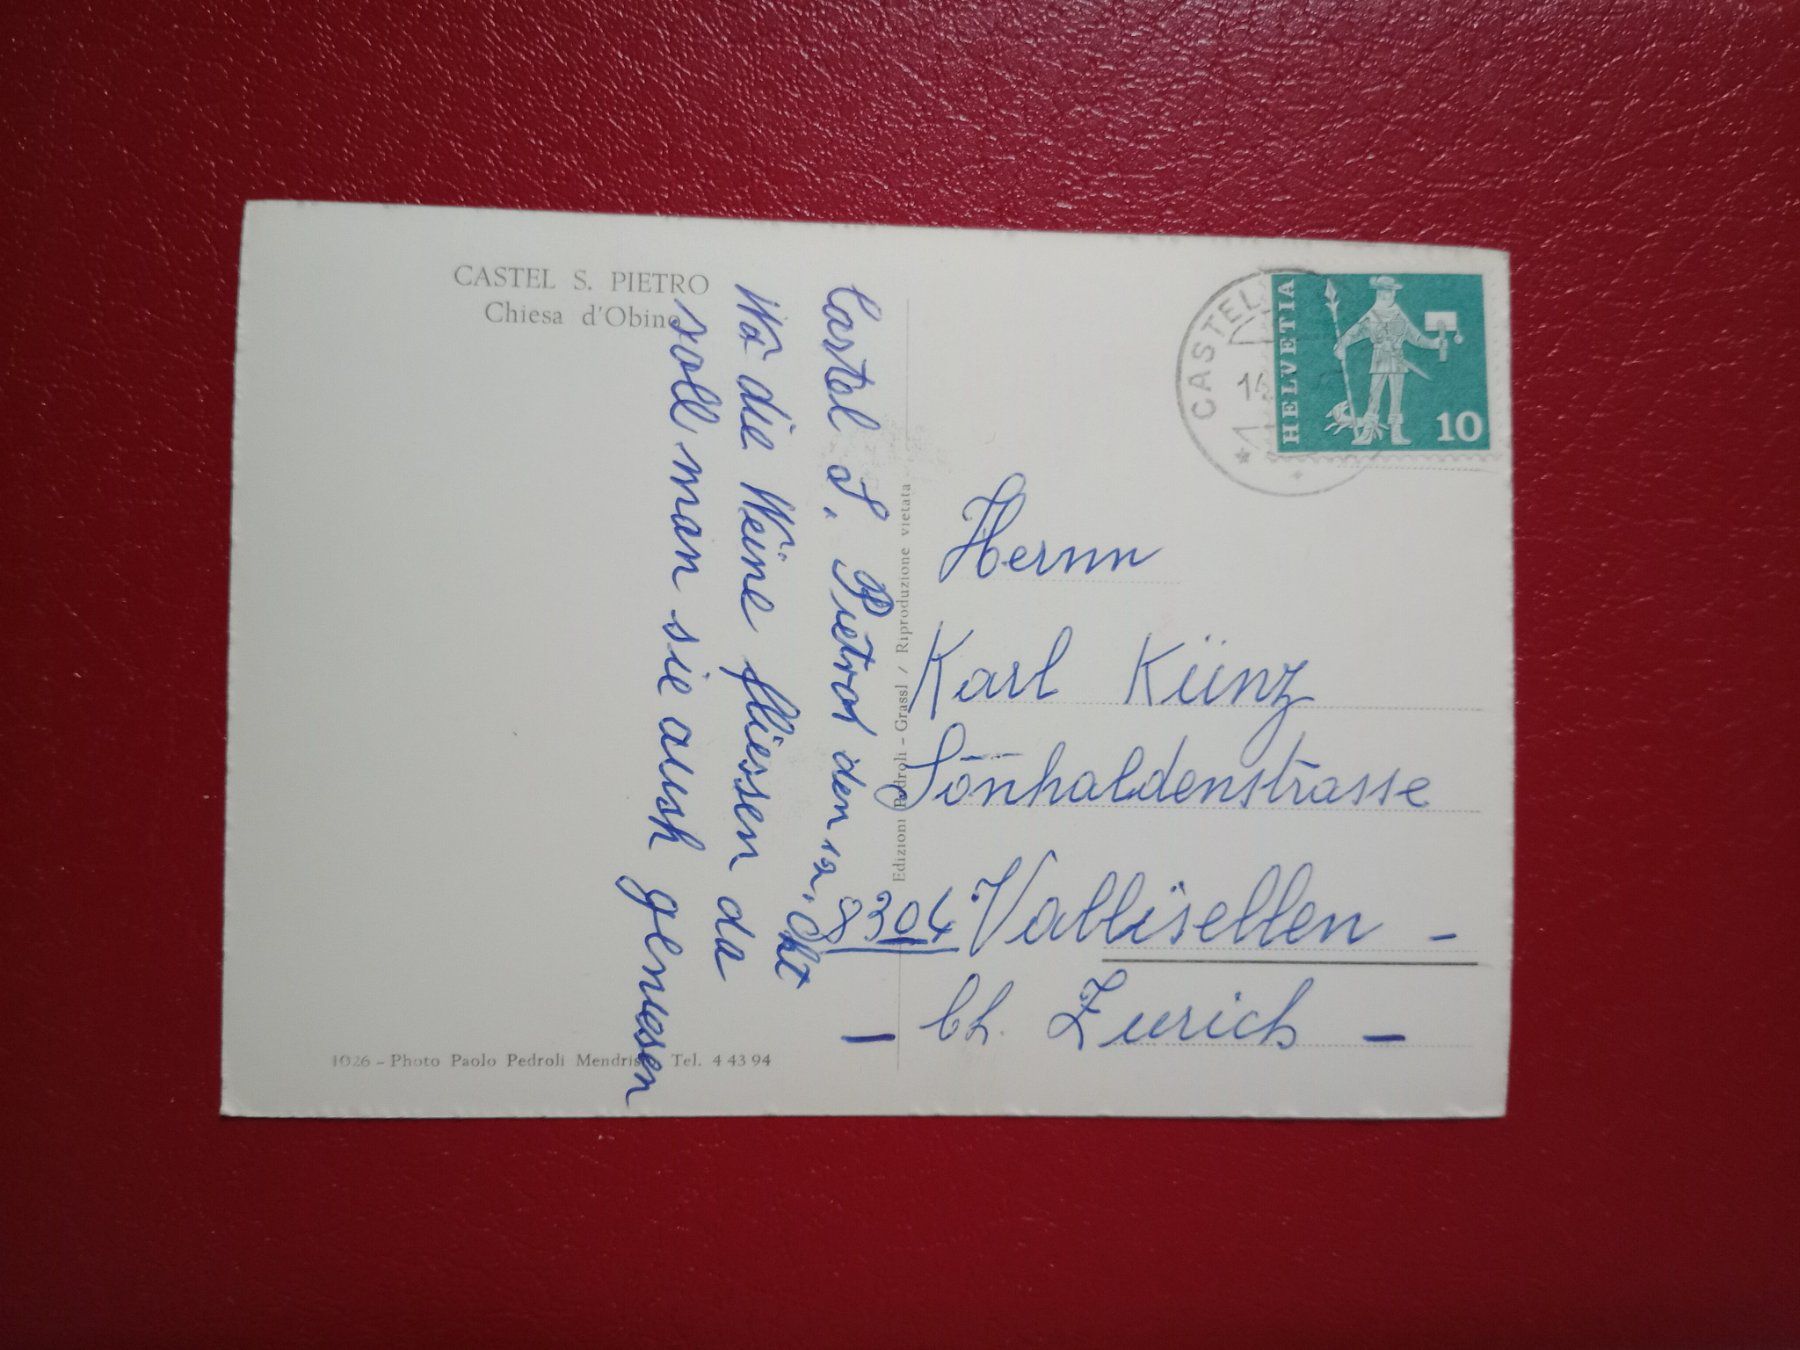 CASTEL S. PIETRO
Chiesa d'Obino
Castel S. Pietro den 12. Okt
Wo die Weine fliessen da
soll man sie auch geniesen
Edizioni Pedroli - Grassl / Riproduzione vietata
1026 - Photo Paolo Pedroli Mendrisio Tel. 4 43 94
CASTEL
HELVETIA
10
Hernn
Karl Künz
Sonhaldenstrasse
8304 Vallisellen -
- bh. Zurich -